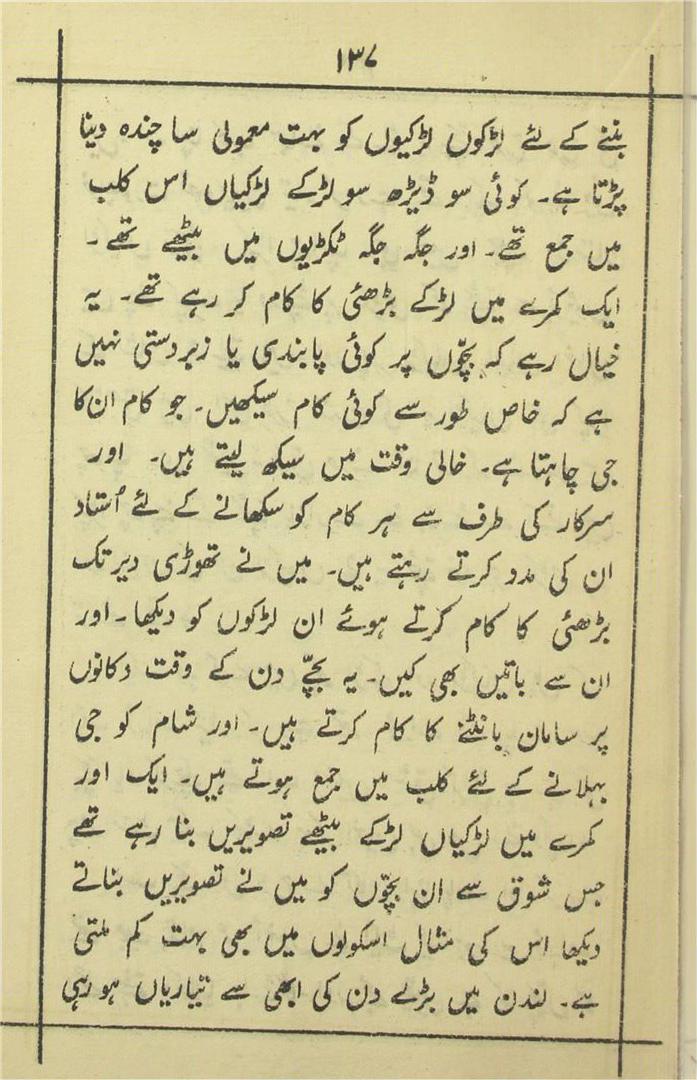 ۱۳۷
بننے کے لئے لڑکوں لڑکیوں کو بہت معمولی سا چندہ دینا
پڑتا ہے۔ کوئی سو ڈیڑھ سو لڑکے لڑکیاں اس کلب
میں جمع تھے۔ اور جگہ جگہ ٹکڑیوں میں بیٹھے تھے۔
ایک کمرے میں لڑکے بڑھئی کا کام کر رہے تھے۔ یہ
خیال رہے کہ بچّوں پر کوئی پابندی یا زبردستی نہیں
ہے کہ خاص طور سے کوئی کام سیکھیں۔ جو کام ان کا
جی چاہتا ہے۔ خالی وقت میں سیکھ لیتے ہیں۔ اور
سرکار کی طرف سے ہر کام کو سکھانے کے لئے اُستاد
ان کی مدد کرتے رہتے ہیں۔ میں نے تھوڑی دیر تک
بڑھئی کا کام کرتے ہوئے ان لڑکوں کو دیکھا۔ اور
ان سے باتیں بھی کیں۔ یہ بچّے دن کے وقت دکانوں
پر سامان بانٹنے کا کام کرتے ہیں۔ اور شام کو جی
بہلانے کے لئے کلب میں جمع ہوتے ہیں۔ ایک اور
کمرے میں لڑکیاں لڑکے بیٹھے تصویریں بنا رہے تھے
جس شوق سے ان بچّوں کو میں نے تصویریں بناتے
دیکھا اس کی مثال اسکولوں میں بھی بہت کم ملتی
ہے۔ لندن میں بڑے دن کی ابھی سے تیاریاں ہو رہی